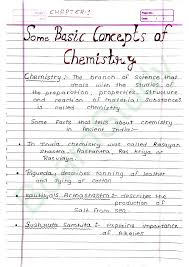 CHAPTER-1
Some Basic Concepts of
Chemistry
Chemistry:- The branch of science that
deals with the studies of
the preparation, properties, structure
and reaction of material substances
is called chemistry.
Some facts that tells about chemistry
in Ancient India:-
In India chemistry was called Rasayan
Shastra, Rastantra, Ras Kriya or
Rasvidya
Rigveda:- describes tanning of leather
and dying of cotton
Kautilya's Arthashastra:- describes the
production of
Salt from sea.
Sushruta Samhita:- explains importance
of Alkalies